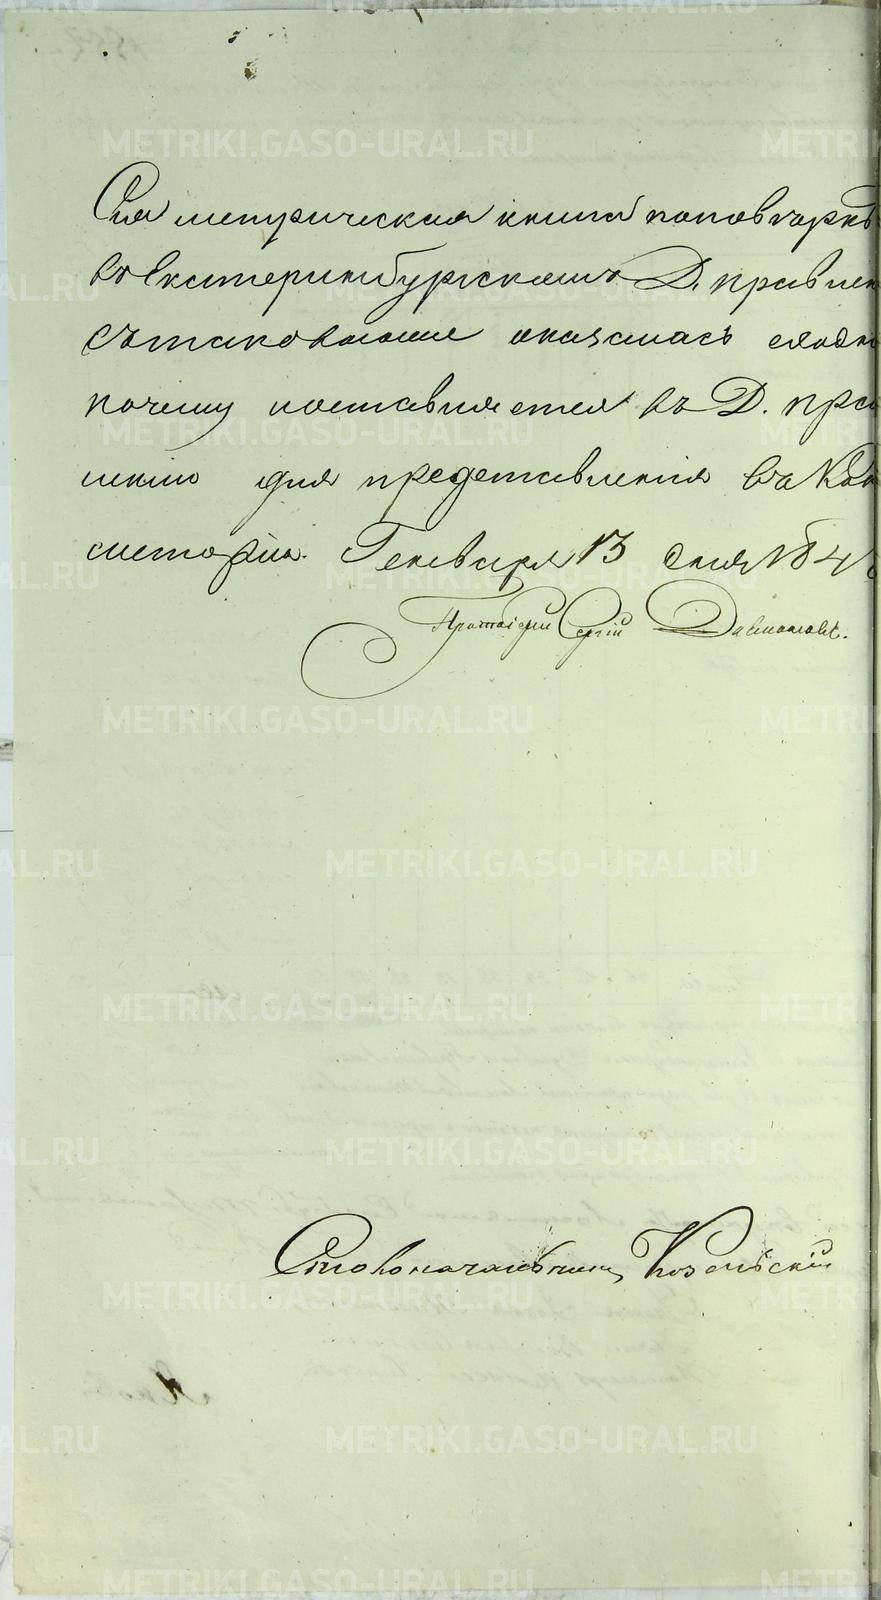 Сія метрическая книга по повѣркѣ
въ Екатеринбургскомъ Д. правлен
съ таковыми оказалась сходн
почему поставляется въ Д. прав
леніи для представленія въ Кон
систорію. Генваря 13 дня 184
Протоіерей Сергій
Столоначальникъ Козельскій
METRIKI.GASO-URAL.RU